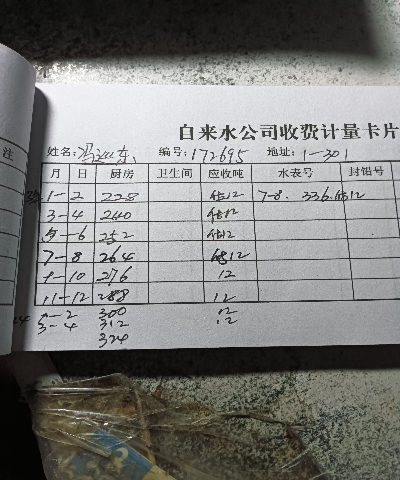 自来水公司收费计量卡片
注 姓名: 冯 东 编号: 172695 地址: 1-301
月 日 厨房 卫生间 应收吨 水表号 封铅号
1-2 228 估12 7-8. 336.估12
3-4 240 估12
5-6 252 估12
7-8 264 估12
9-10 276 12
11-12 288 12
1-2 300 12
3-4 312 12
324